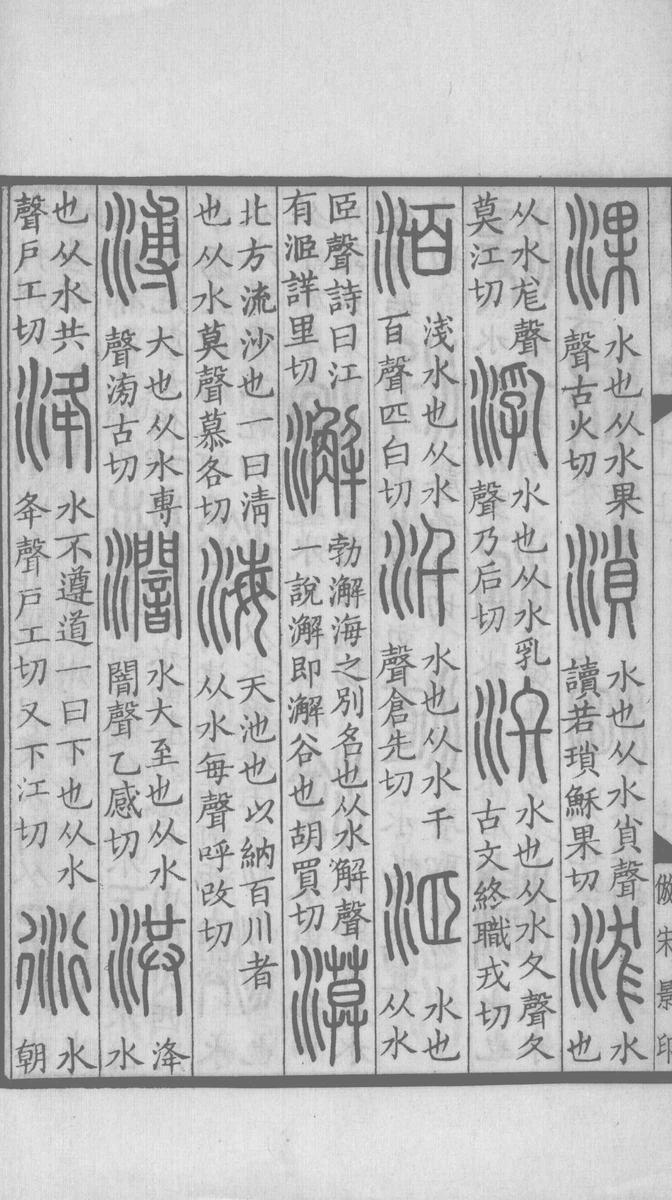 倣宋景印
淉水也从水果聲古火切溑水也从水𧴪聲讀若瑣穌果切浝水也
从水尨聲莫江切水也从水乳聲乃后切汷水也从水夂聲夂古文終職戎切
洦淺水也从水百聲匹白切汘水也从水千聲倉先切洍水也从水
𦣞聲詩曰江有洍詳里切澥勃澥海之別名也从水解聲一說澥即澥谷也胡買切漠
北方流沙也一曰清也从水莫聲慕各切海天池也以納百川者从水每聲呼改切
溥大也从水尃聲滂古切水大至也从水闇聲乙感切洪洚水
也从水共聲戶工切洚水不遵道一曰下也从水夅聲戶工切又下江切衍水朝